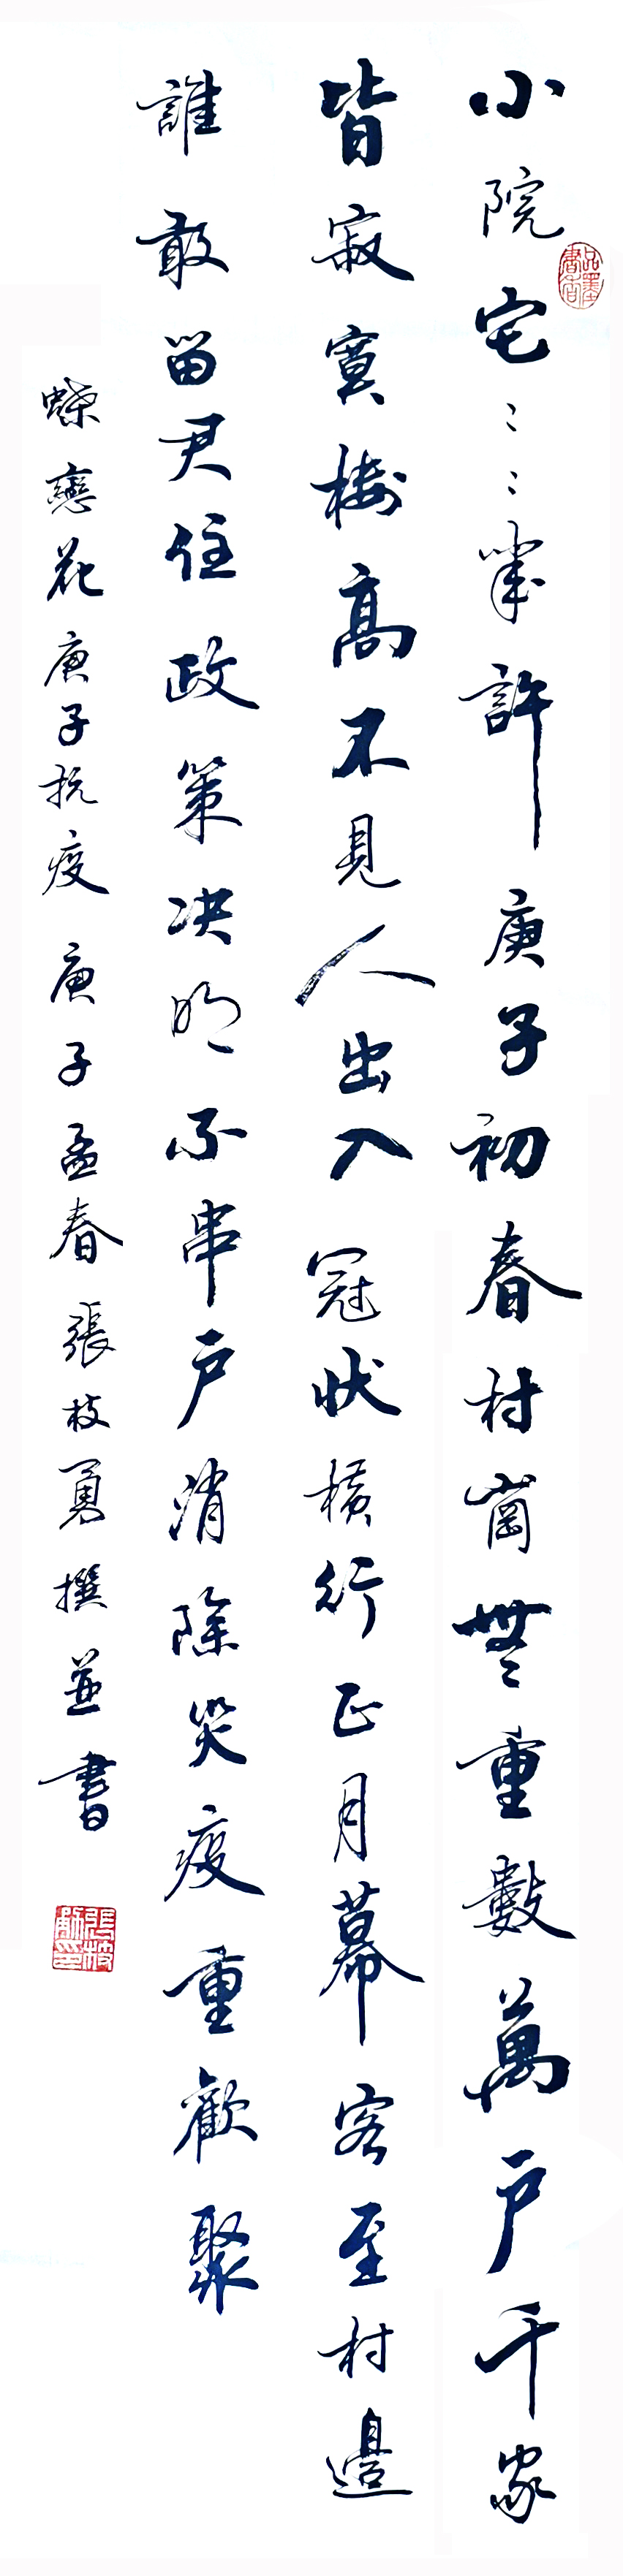 小院宅〻〻幾許庚子初春村崗無重數萬户千家
皆寂寞樓高不見人出入冠狀橫行正月幕客至村邊
誰敢留君住政策决明不串户消除災疫重歡聚
蝶戀花庚子抗疫庚子孟春張枝勇撰並書
品墨書香
張枝勇印